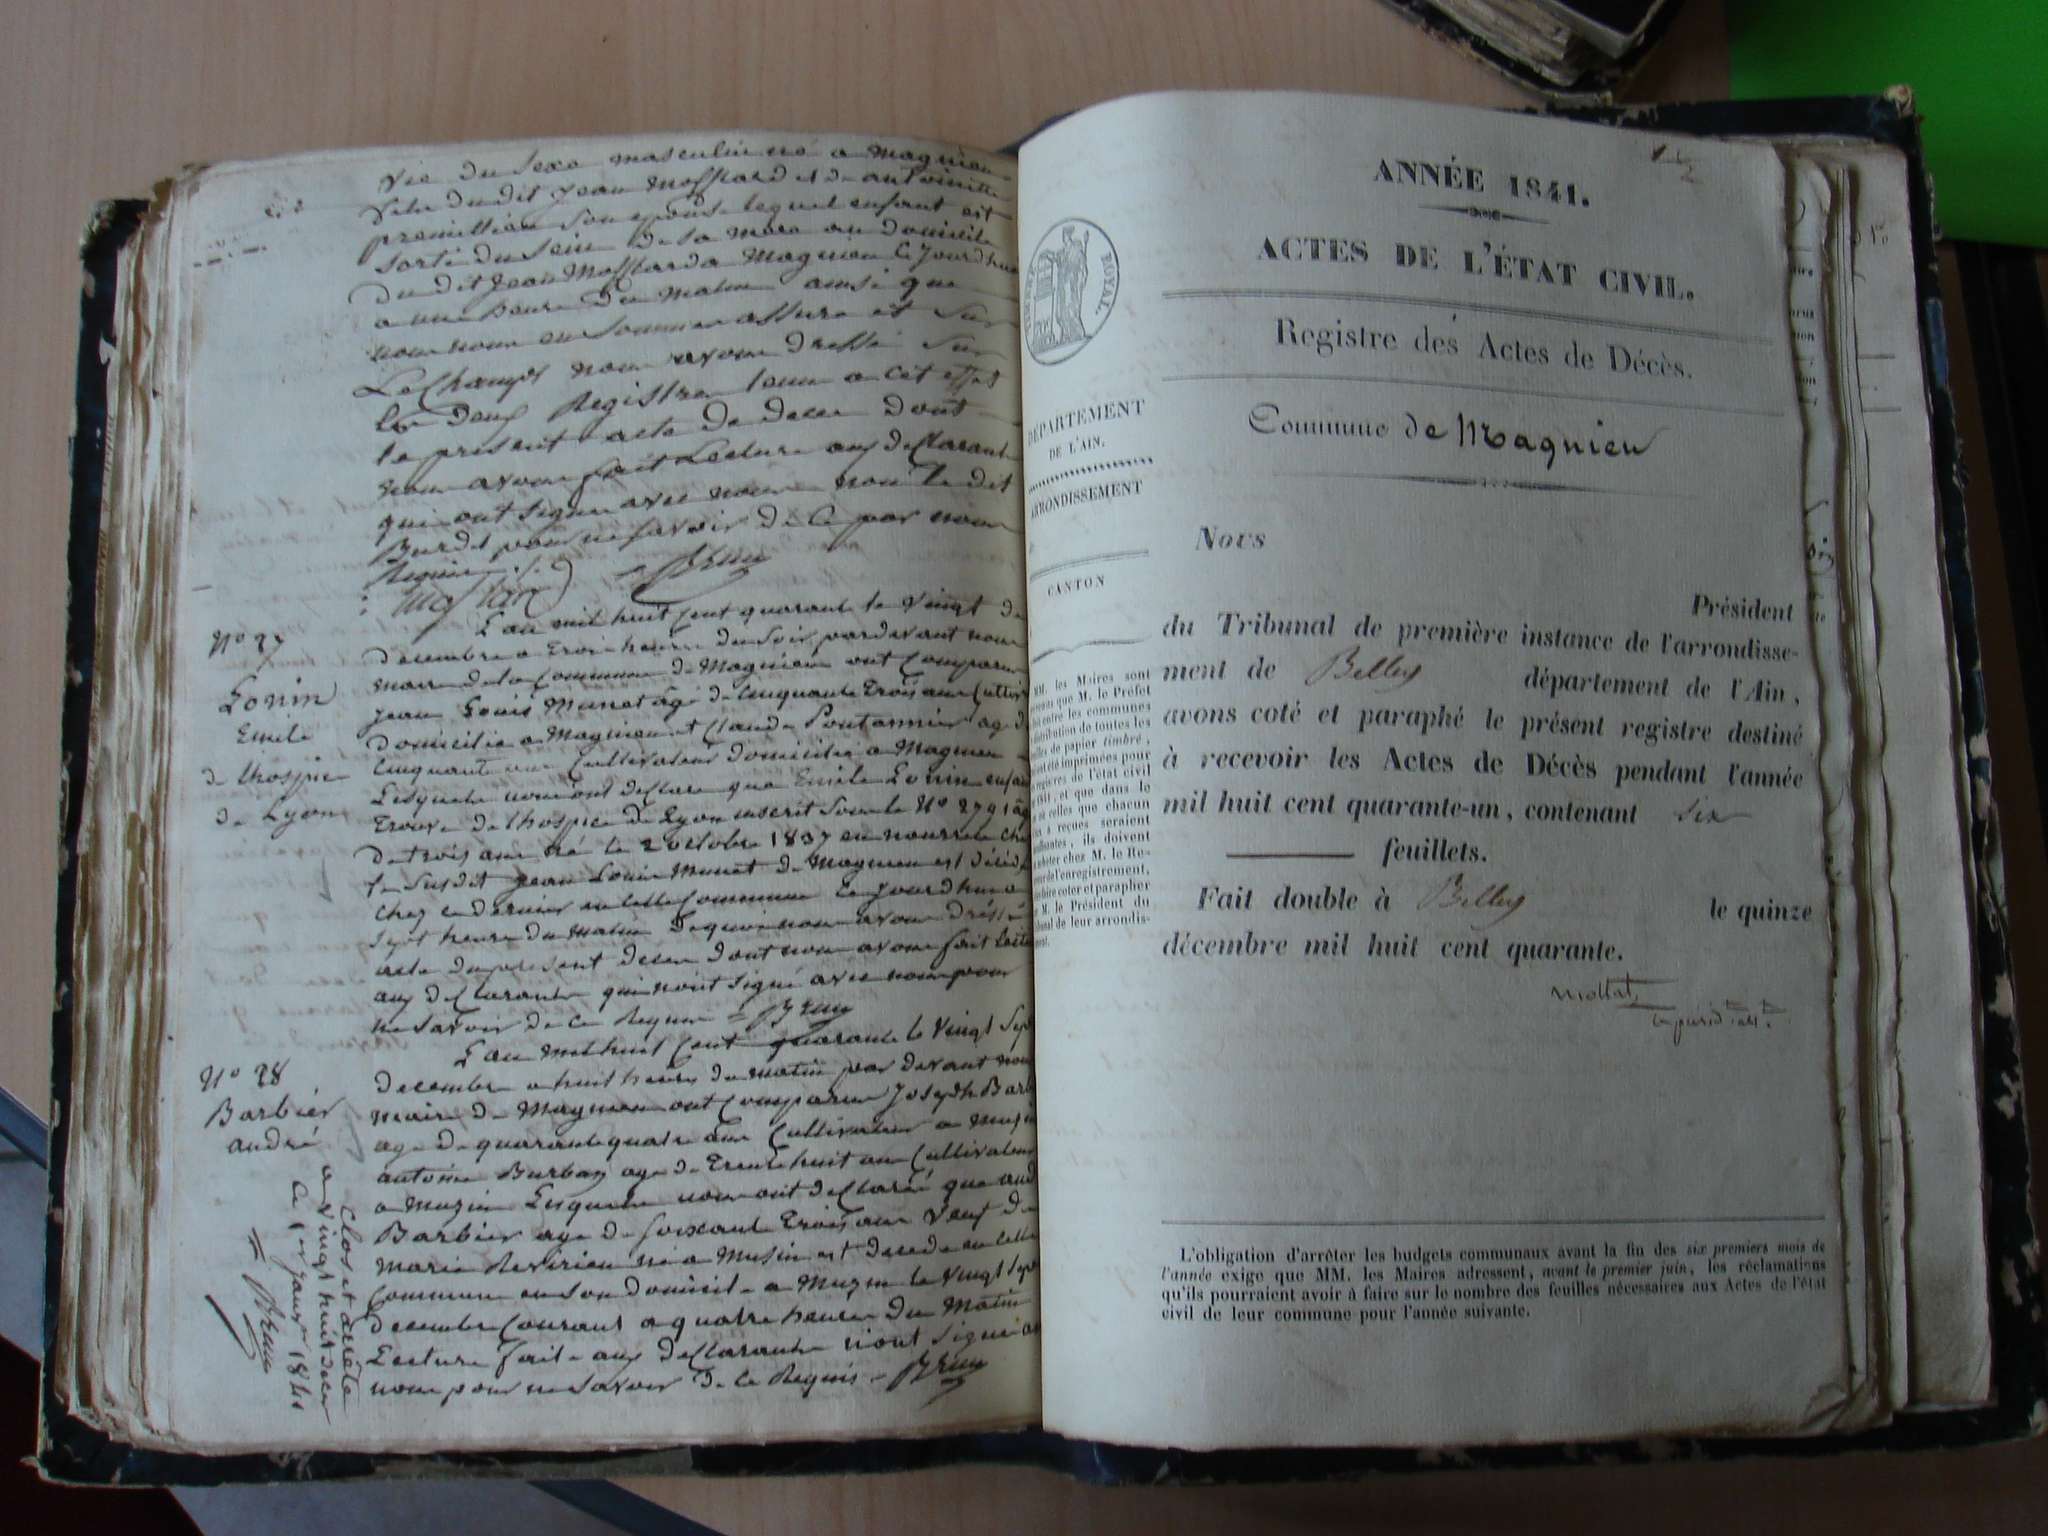 Vie du Sexe masculin né a magnieu
du dit Jean Mossard et de antoinette
premillieu Son epouse lequel enfant est
Sorti du Sein de sa mere au domicile
du dit Jean Mossard a Magnieu Cejourdhui
a une heure du matin ainsi que
nous nous en Sommes assure et Sur
Le Champs nous avons dressé Sur
les deux Registres tenus a cet effet
le present acte de deces dont
nous avons fait Lecture aux declarants
qui ont Signé avec nous non le dit
Burdet pour ne savoir de ce par nous
Requis
Brun
No 27
Lonin
Emile
de lhospice
de Lyon
Lan mil huit Cent quarante le Vingt de
decembre a trois heures du Soir pardevant nous
maire de la Commune de Magnieu ont Comparus
Jean Louis Munet agé de Cinquante trois ans Cultiv
domicilié a Magnieu et Claude Pontannier age de
Cinquante ans Cultivateur domicilié a Magnieu
Lesquels nous ont declare que Emile Lonin enfant
trouve de lhospice de Lyon inscrit Sous le No 2791 agé
de trois ans né le 2 octobre 1837 en nourrice chez
le Susdit Jean Louis Munet de Magnieu est décédé
chez ce dernier en cette Commune Cejourdhui a
Sept heures du matin Dequoi nous avons dréssé
acte du present deces dont nous avons fait Lecture
aux declarants qui nont Signé avec nous pour
ne Savoir de ce Requis = Brun
No 28
Barbier
andré
Lan mil huit Cent quarante le Vingt Sept
decembre a huit heures du matin par devant nous
maire de Magnieu ont Comparus Joseph Barb
age de quarante quatre ans Cultivateur a Musin
antoine Burbay age de trente huit ans Cultivateur
a Musin Lesquels nous ont declaré que and
Barbier age de Soixante trois ans Veuf de
marie Revirieu né a Musin est decede en cette
Commune en Son domicile a Muzin le Vingt Sept
decembre Courant a quatre heures du Matin
Lecture faite aux declarants n'ont Signé av
nous pour ne Savoir de ce Requis = Brun
Clos et arrêté
a vingt huit deces
le 1er janvr 1841
= Brun
ANNÉE 1841.
ACTES DE L'ÉTAT CIVIL.
ROYAL.
Registre des Actes de Décès.
Commune de Magnieu
DÉPARTEMENT
DE L'AIN.
ARRONDISSEMENT
CANTON
MM. les Maires sont
que M. le Préfet
entre les communes
distribution de toutes les
de papier timbré,
été imprimées pour
registres de l'état civil
1841, et que dans le
celles que chacun
reçues seraient
, ils doivent
acheter chez M. le Re-
de l'enregistrement,
faire coter et parapher
M. le Président du
tribunal de leur arrondis-
Nous
Président
du Tribunal de première instance de l'arrondisse-
ment de Belley département de l'Ain,
avons coté et paraphé le présent registre destiné
à recevoir les Actes de Décès pendant l'année
mil huit cent quarante-un, contenant six
feuillets.
Fait double à Belley le quinze
décembre mil huit cent quarante.
L'obligation d'arrêter les budgets communaux avant la fin des six premiers mois de
l'année exige que MM. les Maires adressent, avant le premier juin, les réclamations
qu'ils pourraient avoir à faire sur le nombre des feuilles nécessaires aux Actes de l'état
civil de leur commune pour l'année suivante.